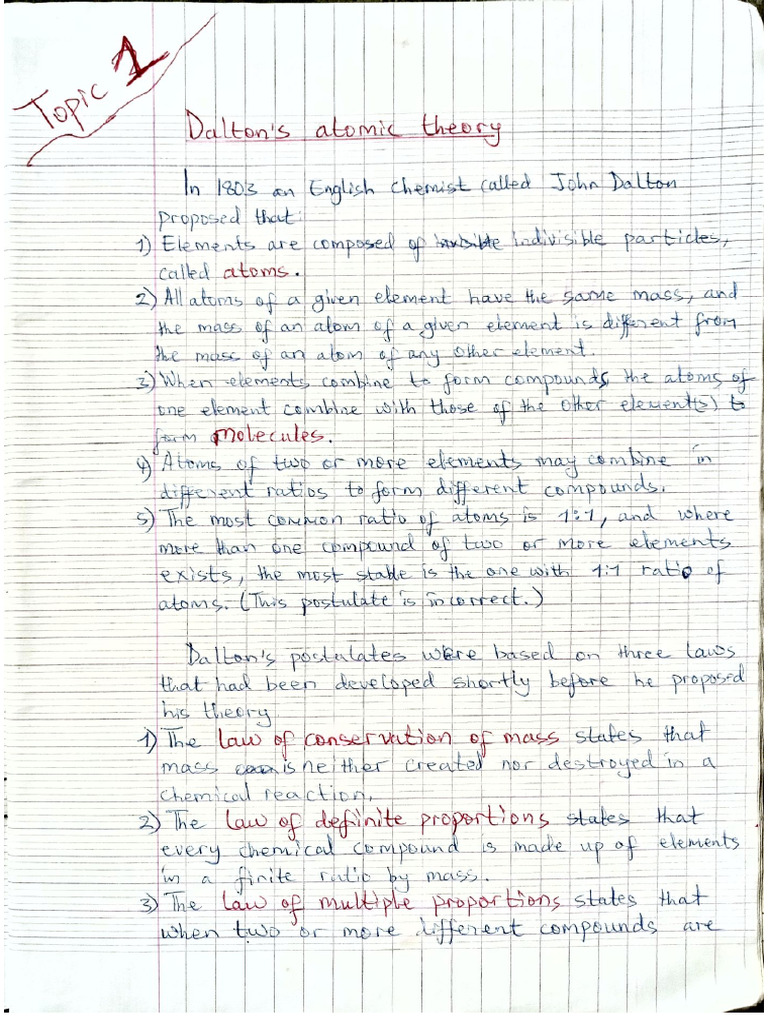 Topic 1
Dalton's atomic theory
In 1803 an English chemist called John Dalton
proposed that:
1) Elements are composed of indivisible particles,
called atoms.
2) All atoms of a given element have the same mass, and
the mass of an atom of a given element is different from
the mass of an atom of any other element.
3) When elements combine to form compounds, the atoms of
one element combine with those of the other element(s) to
form molecules.
4) Atoms of two or more elements may combine in
different ratios to form different compounds.
5) The most common ratio of atoms is 1:1, and where
more than one compound of two or more elements
exists, the most stable is the one with 1:1 ratio of
atoms. (This postulate is incorrect.)
Dalton's postulates were based on three laws
that had been developed shortly before he proposed
his theory
1) The law of conservation of mass states that
mass is neither created nor destroyed in a
chemical reaction.
2) The law of definite proportions states that
every chemical compound is made up of elements
in a finite ratio by mass.
3) The law of multiple proportions states that
when two or more different compounds are